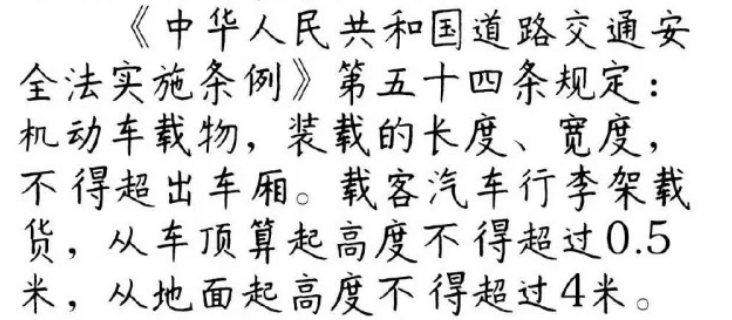 《中华人民共和国道路交通安
全法实施条例》第五十四条规定：
机动车载物，装载的长度、宽度，
不得超出车厢。载客汽车行李架载
货，从车顶算起高度不得超过0.5
米，从地面起高度不得超过4米。